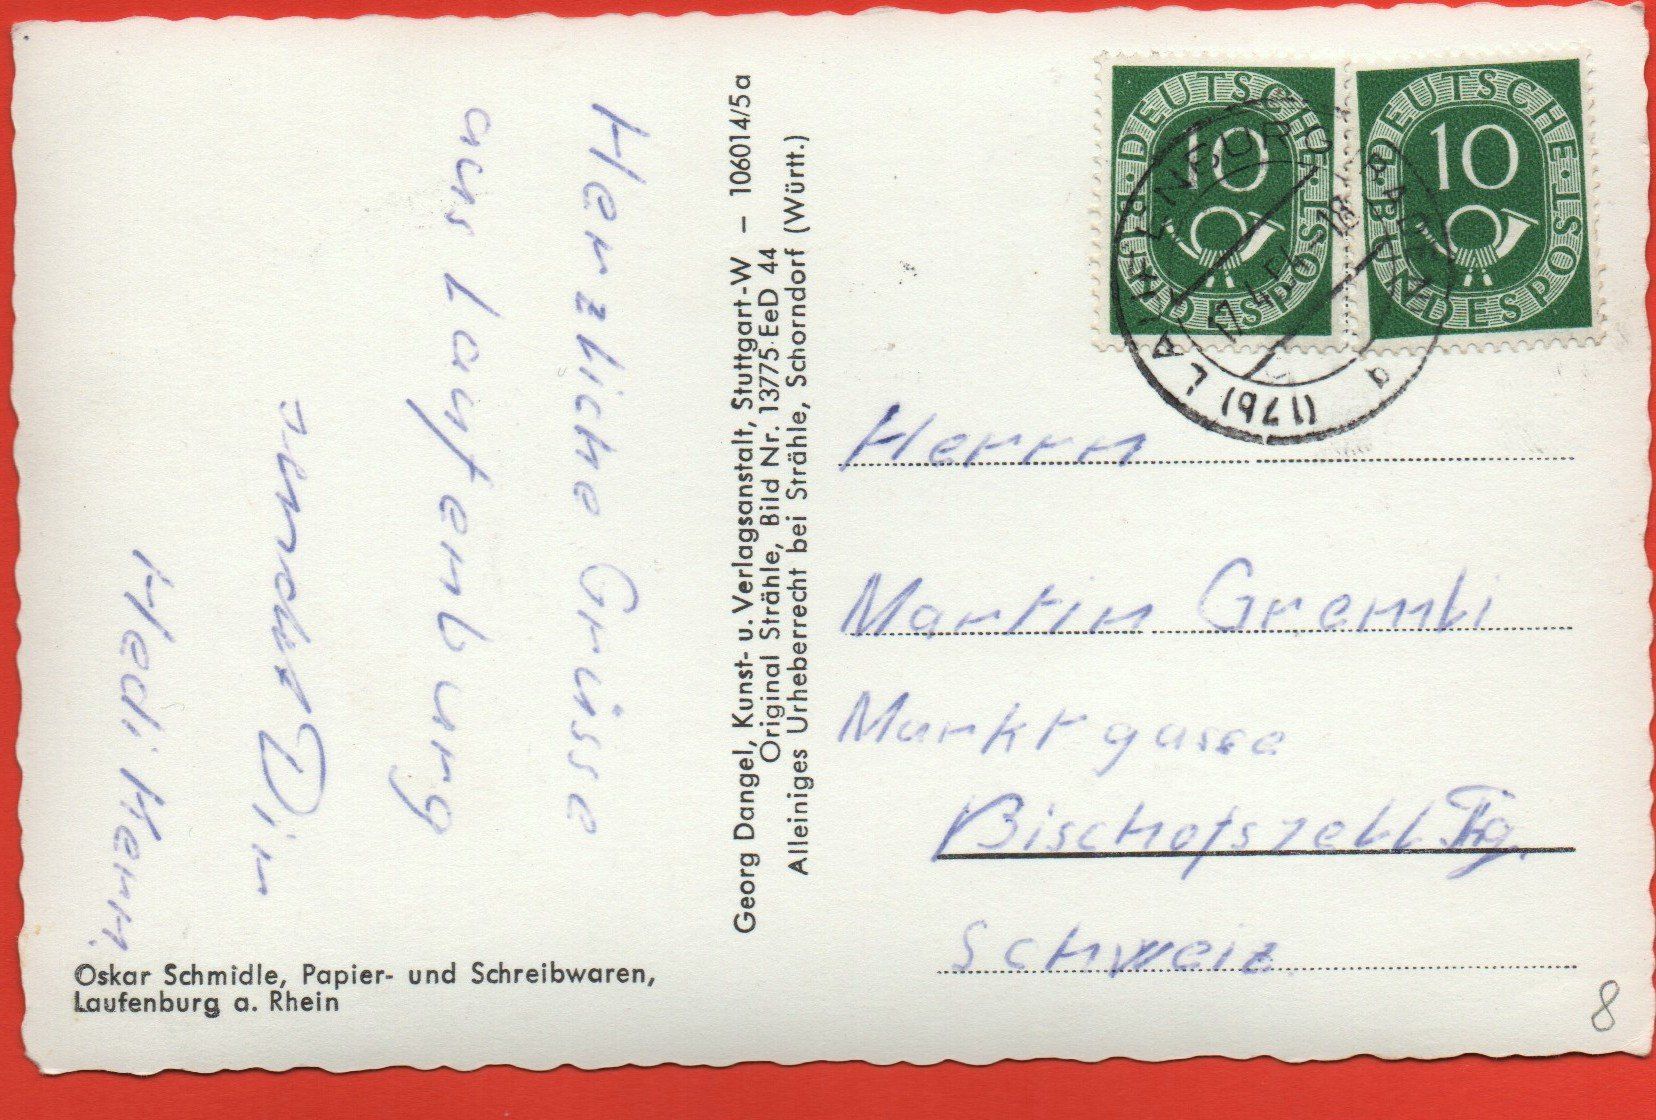 Herzliche Grüsse
aus Laufenburg
sendet Dir
Hedi Kern.
Oskar Schmidle, Papier- und Schreibwaren,
Laufenburg a. Rhein
Georg Dangel, Kunst- u. Verlagsanstalt, Stuttgart-W – 106014/5a
Original Strähle, Bild Nr. 13775 EeD 44
Alleiniges Urheberrecht bei Strähle, Schorndorf (Württ.)
DEUTSCHE·POST
10
BUNDESPOST
DEUTSCHE·POST
10
BUNDESPOST
(17b) LAUFENBURG (BADEN)
a
Herrn
Martin Grembi
Marktgasse
Bischofszell Thg.
Schweiz.
8